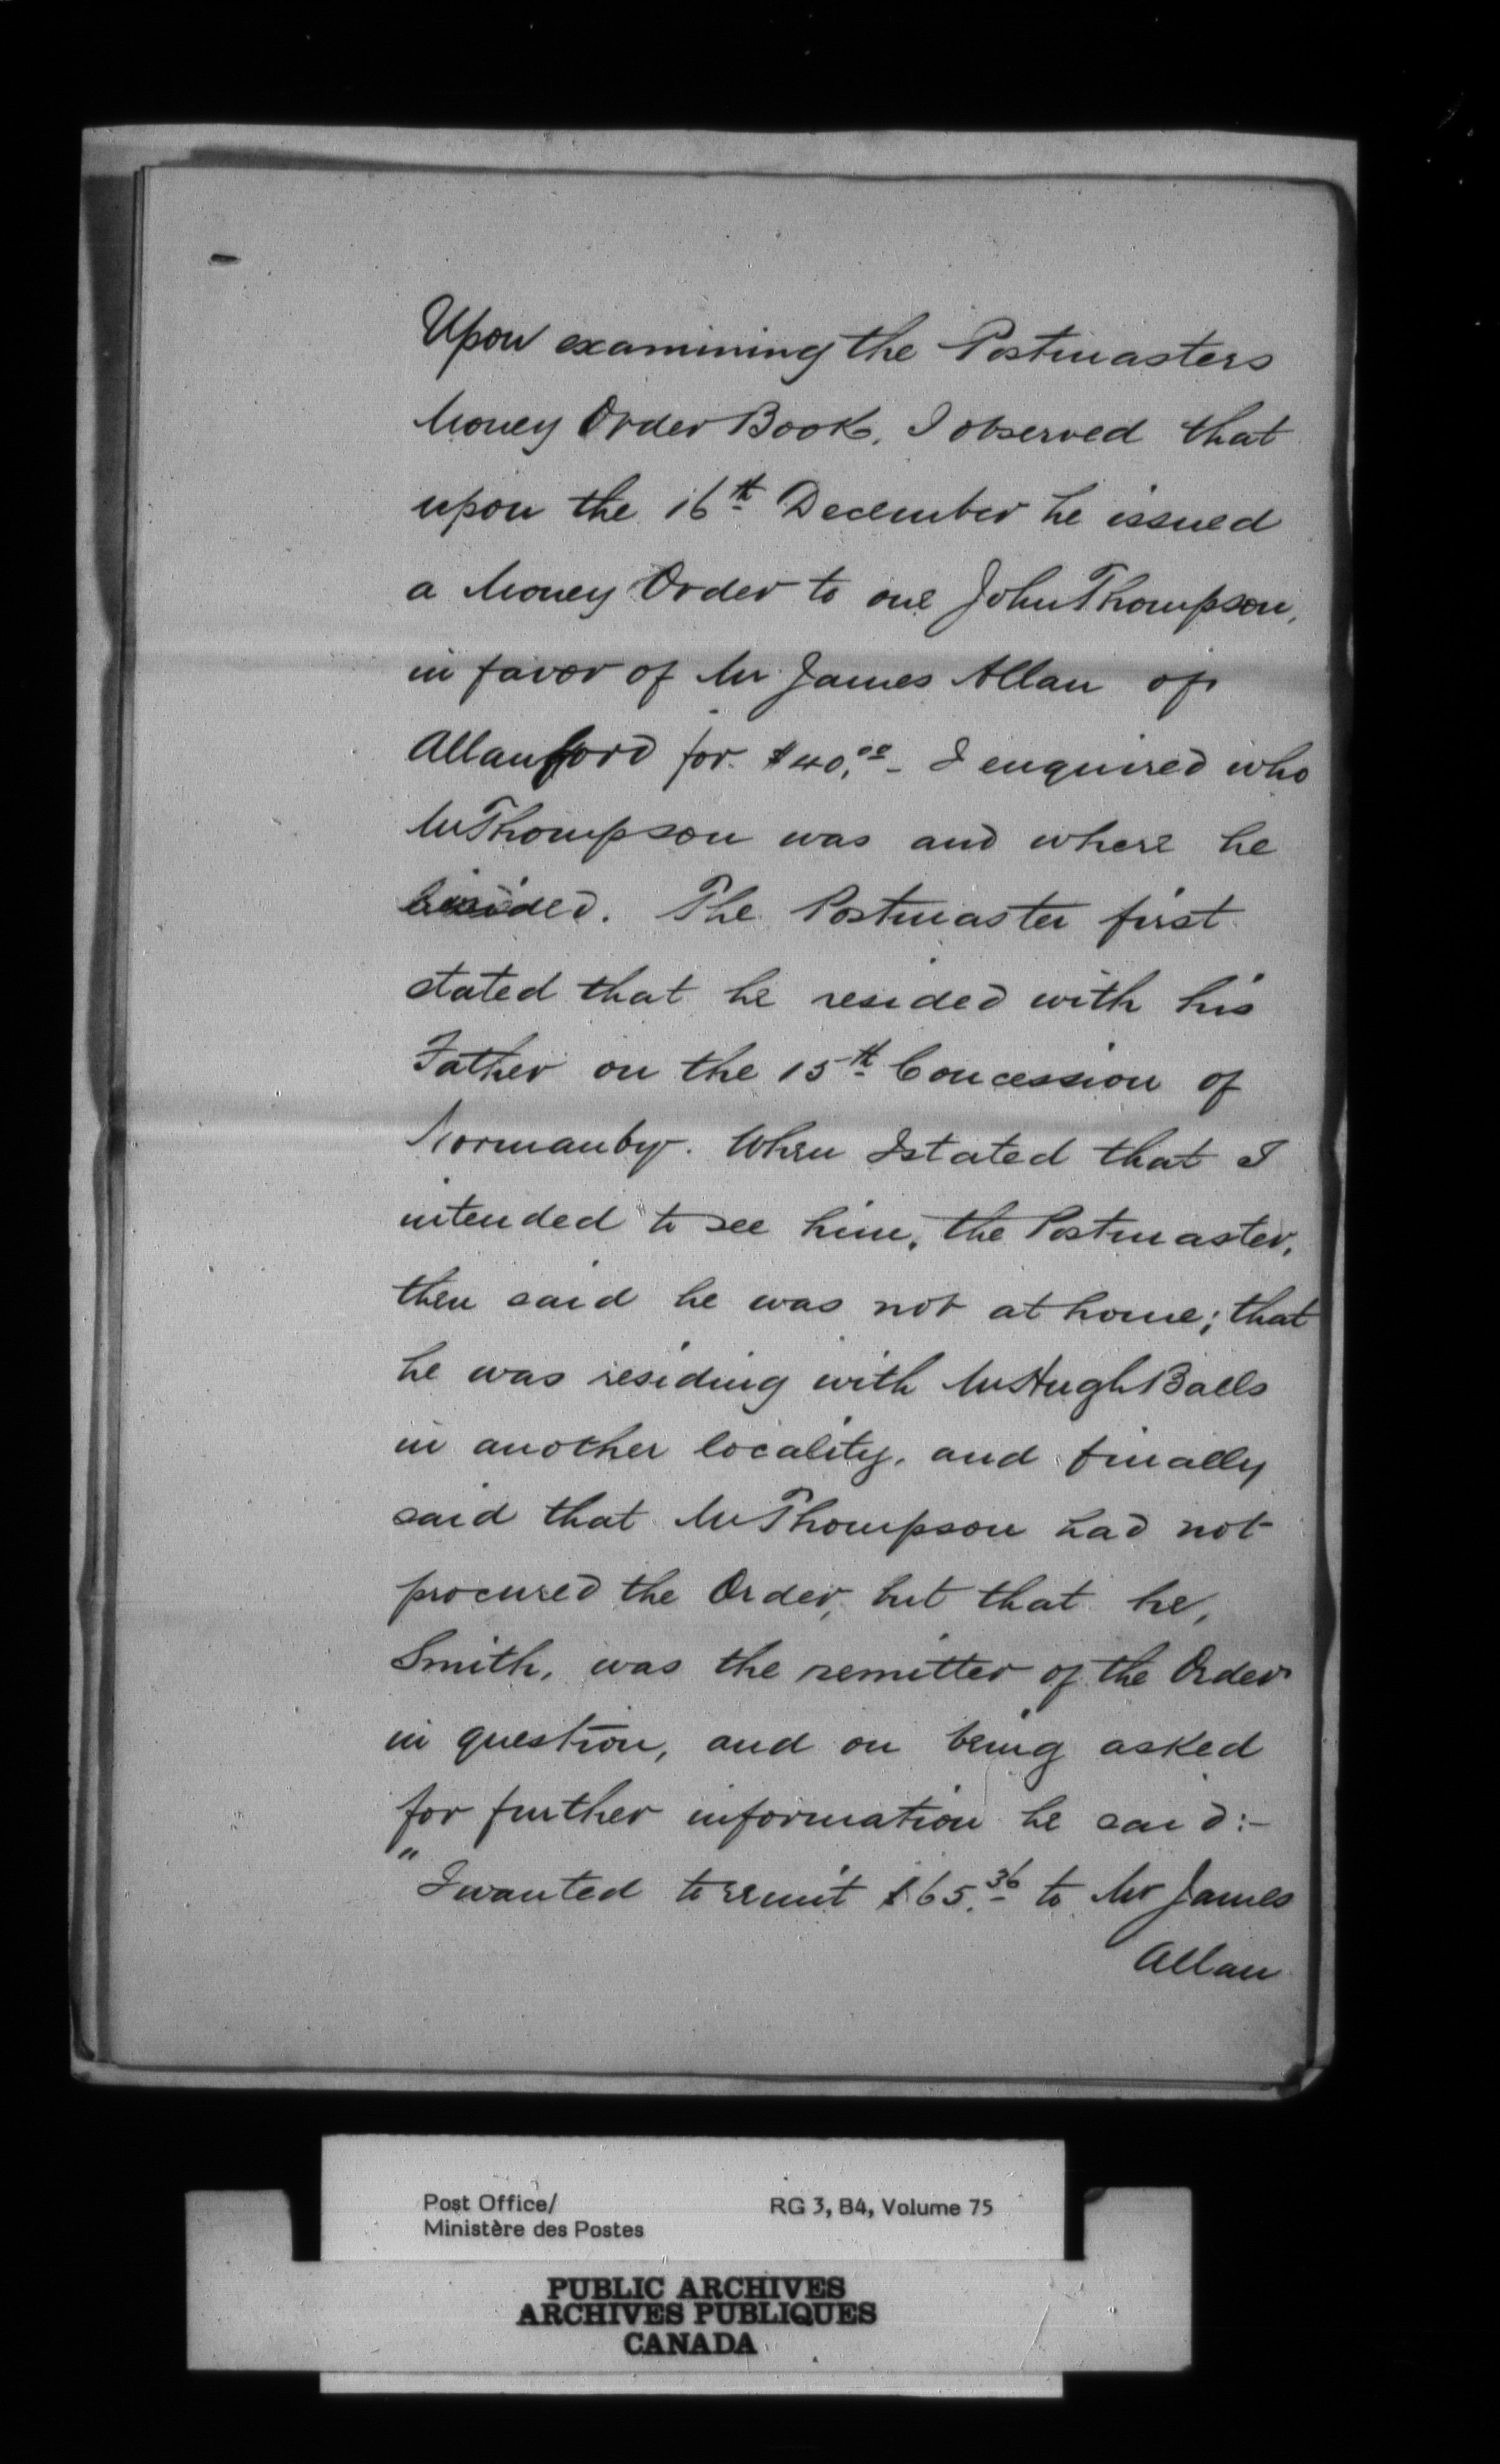 Upon examining the Postmasters
Money Order Book, I observed that
upon the 16th December he issued
a Money Order to one John Thompson,
in favor of Mr James Allan of
Allanford for $40.00 - I enquired who
Mr Thompson was and where he
resided. The Postmaster first
stated that he resided with his
Father on the 15th Concession of
Normanby. When I stated that I
intended to see him, the Postmaster,
then said he was not at home; that
he was residing with Mr Hugh Balls
in another locality, and finally
said that Mr Thompson had not
procured the Order, but that he,
Smith, was the remitter of the Order
in question, and on being asked
for further information he said:-
"I wanted to remit $65.36 to Mr James
Allan
Post Office/
Ministère des Postes
RG 3, B4, Volume 75
PUBLIC ARCHIVES
ARCHIVES PUBLIQUES
CANADA